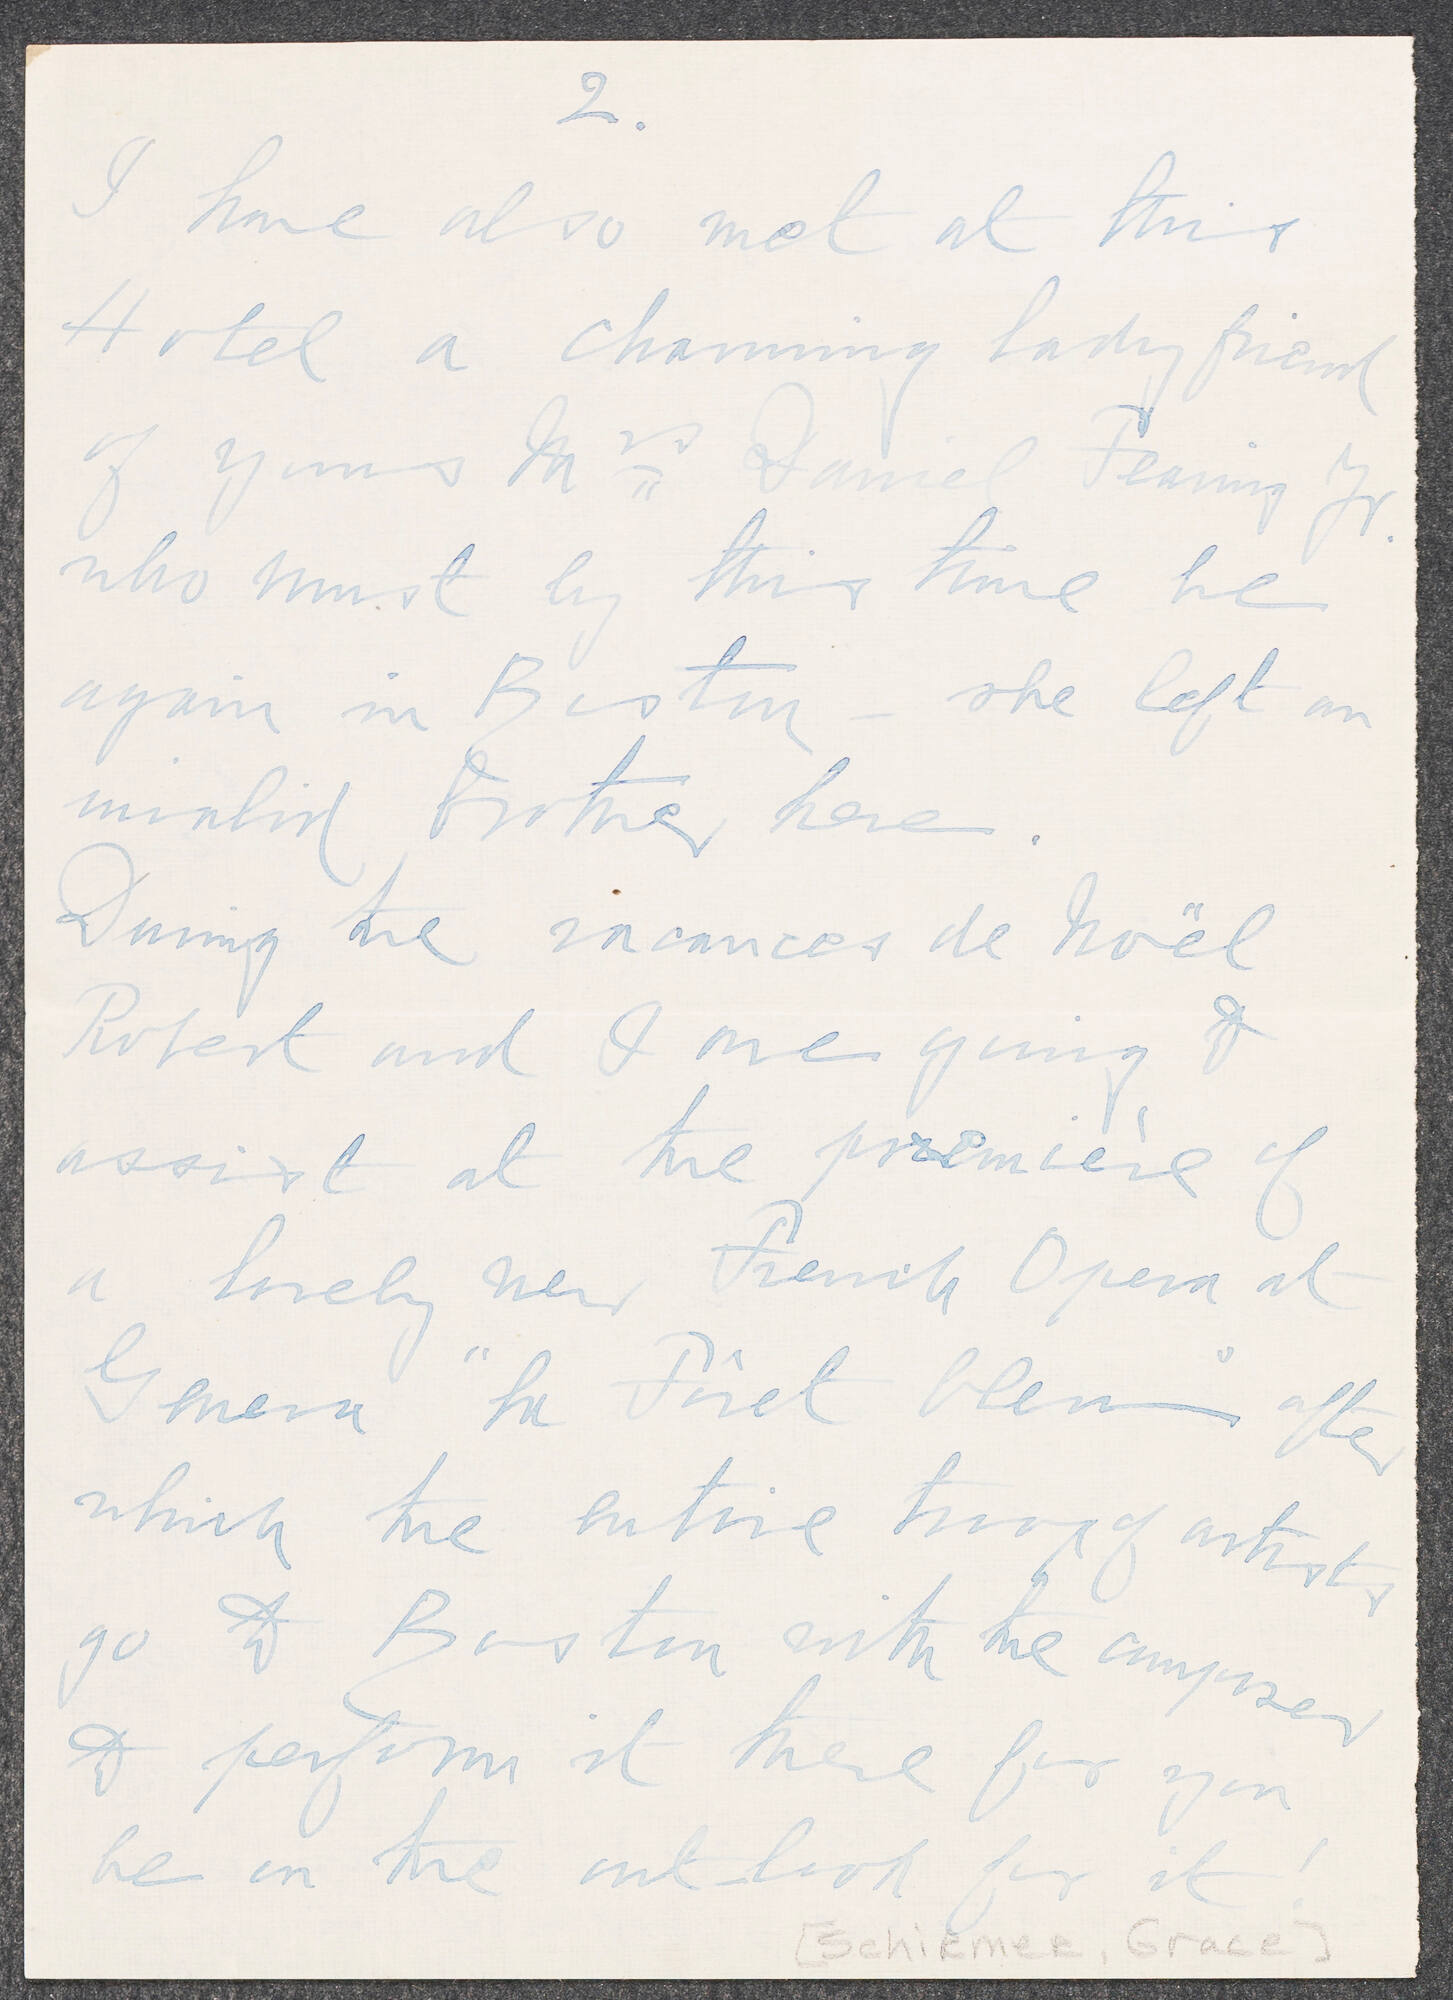 2.
I have also met at this
Hotel a charming lady friend
of yours Mrs Daniel Fearing Jr.
who must by this time be
again in Boston – she left an
invalid Brother here.
During the vacances de Noël
Robert and I are going to
assist at the première of
a lovely new French Opera at
Geneva "La Fôret bleu" after
which the entire troop of artists
go to Boston with the composer
to perform it there for you
be on the out-look for it!
[Schirmer, Grace]